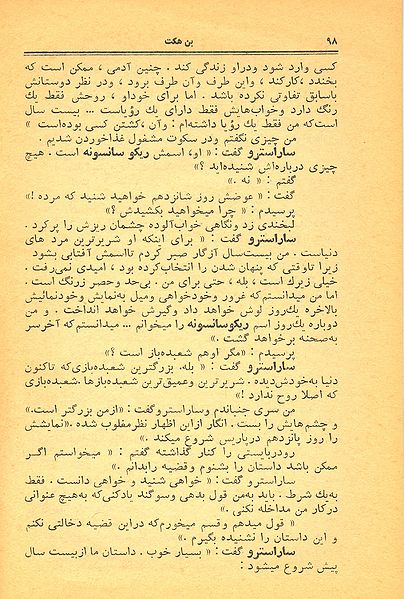 ۹۸
بن هکت
کسی وارد شود ودراو زندگی کند . چنین آدمی ، ممکن است که
بخندد ،کارکند ، واین طرف وآن طرف برود ، ودر نظر دوستانش
باسابق تفاوتی نکرده باشد . اما برای خوداو ، روحش فقط یك
رنگ دارد وخواب‌هایش فقط دارای یك رؤیاست ... بیست سال
است‌که من فقط یك رؤیا داشته‌ام : وآن ،کشتن کسی بوده‌است »
من چیزی نگفتم ودر سکوت مشغول غذاخوردن شدیم
ساراسترو گفت : « او، اسمش ریکو سانسونه است . هیچ
چیزی درباره‌اش شنیده‌اید ؟»
گفتم : « نه .»
گفت : « عوضش روز شانزدهم خواهید شنید که مرده !»
پرسیدم : « چرا میخواهید بکشیدش ؟»
لبخندی زد ونگاهی خواب‌آلوده چشمان ریزش را پرکرد .
ساراسترو گفت : « برای اینکه او شریرترین مرد های
دنیاست . من بیست‌سال آزگار صبر کردم تااسمش آفتابی بشود
زیرا تاوقتی که پنهان شدن را انتخاب‌کرده بود ، امیدی نمی‌رفت .
خیلی زیرك است ، بله ، حتی برای من . بی‌حد وحصر زرنگ است .
اما من میدانستم‌که غرور وخودخواهی ومیل به‌نمایش وخودنمائیش
بالاخره یك‌روز لوش خواهد داد وگیرش خواهد انداخت . و من
دوباره یك‌روز اسم ریکوسانسونه را میخوانم ... میدانستم‌که آخرسر
به‌صحنه برخواهد گشت .»
پرسیدم : «مگر اوهم شعبده‌باز است ؟»
ساراسترو گفت : « بله. بزرگترین شعبده‌بازی‌که تاکنون
دنیا به‌خودش‌دیده . شریرترین وعمیق‌ترین شعبده‌بازها .شعبده‌بازی
که اصلا روح ندارد !»
من سری جنباندم وساراستروگفت : «ازمن بزرگتر است.»
و چشم‌هایش را بست . انگار ازاین اظهار نظرمغلوب شده .«نمایشش
را روز پانزدهم درپاریس شروع میکند .»
رودربایستی را کنار گذاشته گفتم : « میخواستم اگر
ممکن باشد داستان را بشنوم وقضیه رابدانم .»
ساراسترو گفت : « خواهی شنید و خواهی دانست . فقط
به‌یك شرط . باید به‌من قول بدهی وسوگند یادکنی‌که به‌هیچ عنوانی
درکار من مداخله نکنی .»
« قول میدهم وقسم میخورم‌که دراین قضیه دخالتی نکنم
و این داستان را نشنیده بگیرم .»
ساراسترو گفت: « بسیار خوب . داستان ما ازبیست سال
پیش شروع میشود :